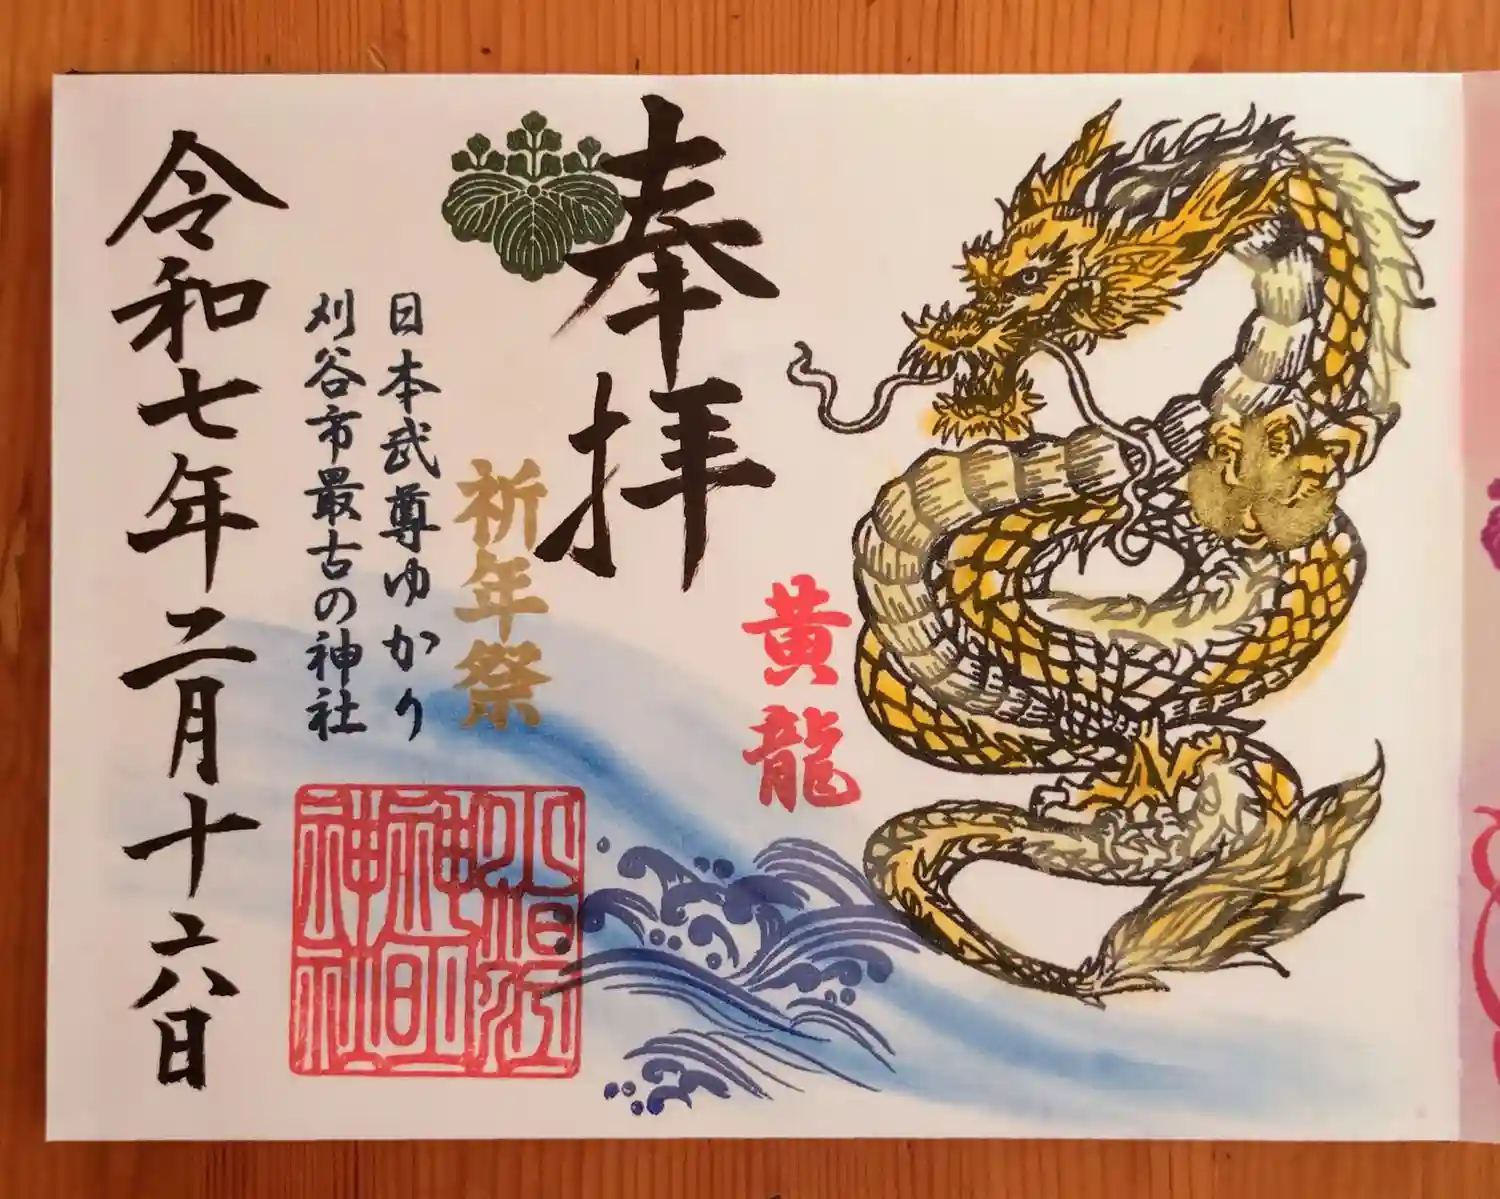 黄龍
奉拝
祈年祭
日本武尊ゆかり
刈谷市最古の神社
令和七年二月十六日